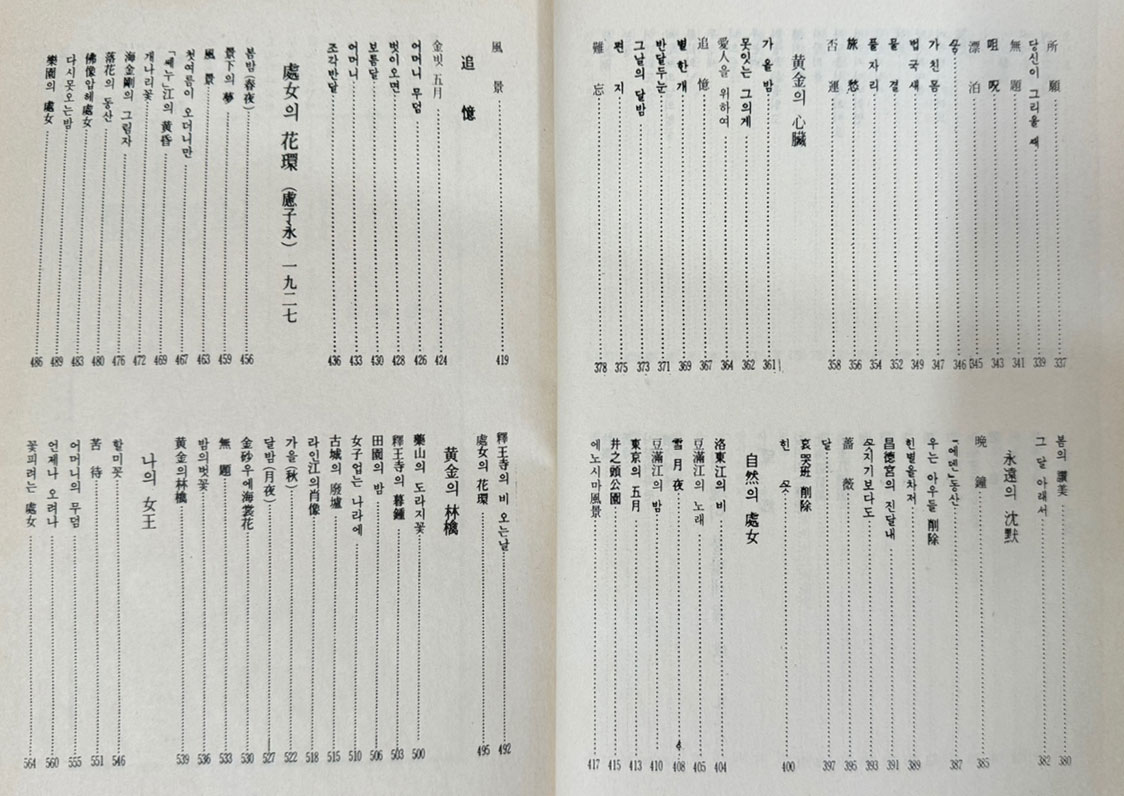 所願 337
당신이 그리울 때 339
無題 341
咀呪 343
漂泊 345
꿍 346
가친몸 347
법국새 349
물결 352
풀자리 354
旅愁 356
否運 358
黃金의 心臟
가을밤 361
못잇는 그의게 362
愛人을 위하여 364
追憶 367
별한개 369
반달두눈 371
그날의 달밤 373
편지 375
難忘 378
봄의 讚美 380
그 달 아래서 382
永遠의 沈默
晩鐘 385
「에덴」동산 387
우는 아우들 削除
흰별을차저 389
昌德宮의 진달내 391
꼿지기보다도 393
薔薇 395
달 397
哀哭班 削除
힌 꼿 400
自然의 處女
洛東江의 비 404
豆滿江의 노래 405
雪月夜 408
豆滿江의 밤 410
東京의 五月 413
井之頭公園 415
에노시마風景 417
風景 419
追憶
金빗 五月 424
어머니 무덤 426
벗이오면 428
보름달 430
어머니 433
조각반달 436
處女의 花環 (盧子永) 一九二七
봄밤(春夜) 456
景下의 夢 459
風景 463
첫여름이 오더니만 467
「쎄누」江의 黃昏 469
개나리꽃 472
海金剛의 그림자 476
落花의 동산 480
佛像압헤處女 483
다시못오는밤 489
樂園의 處女 486
釋王寺의 비 오는날 492
處女의 花環 495
黃金의 林檎
藥山의 도라지꽃 500
釋王寺의 暮鍾 503
田園의 밤 506
女子업는 나라에 510
古城의 廢墟 515
라인江의肖像 518
가을(秋) 522
달밤(月夜) 527
金砂우에海棠花 530
無題 533
밤의벗꽃 536
黃金의林檎 539
나의 女王
할미꽃 546
苦待 551
어머니의 무덤 555
언제나 오려나 560
꽃피려는 處女 564